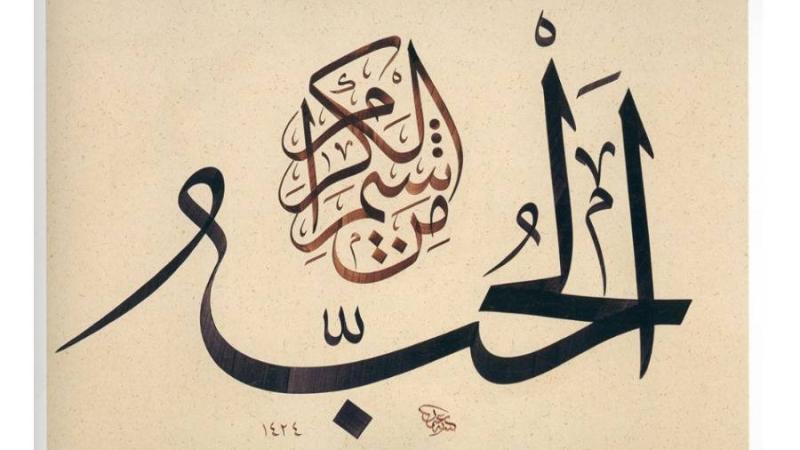 الحُبّ
مِن شيم الكرام
١٤٢٤